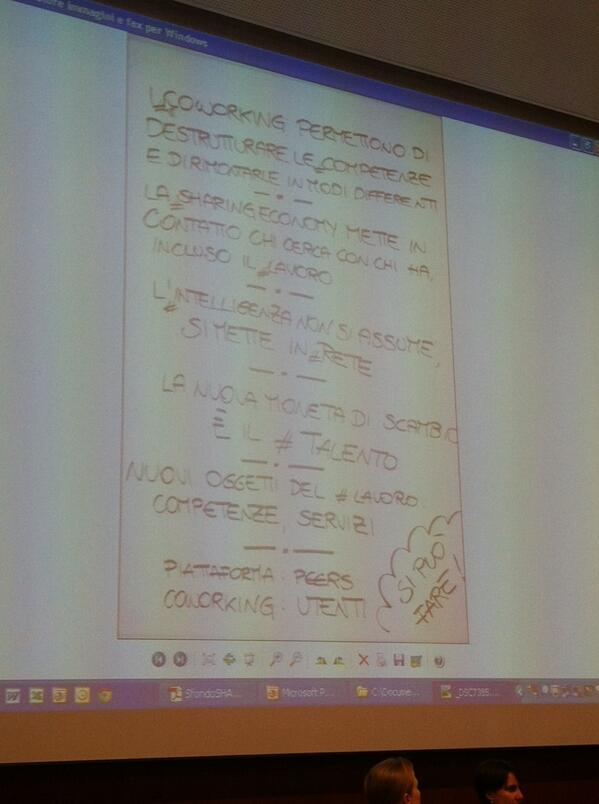 immagini e fax per Windows
I #COWORKING PERMETTONO DI
DESTRUTTURARE LE #COMPETENZE
E DI RIMONTARLE IN MODI DIFFERENTI
LA #SHARING ECONOMY METTE IN
CONTATTO CHI CERCA CON CHI HA,
INCLUSO IL #LAVORO
L'#INTELLIGENZA NON SI ASSUME,
SI METTE IN #RETE
LA NUOVA MONETA DI SCAMBIO
È IL # TALENTO
NUOVI OGGETTI DEL # LAVORO:
COMPETENZE, SERVIZI
PIATTAFORMA: PEERS
COWORKING: UTENTI
SI PUÒ
FARE!
SfondoSHA...
Microsoft P...
C:\Docume...
_DSC7385...